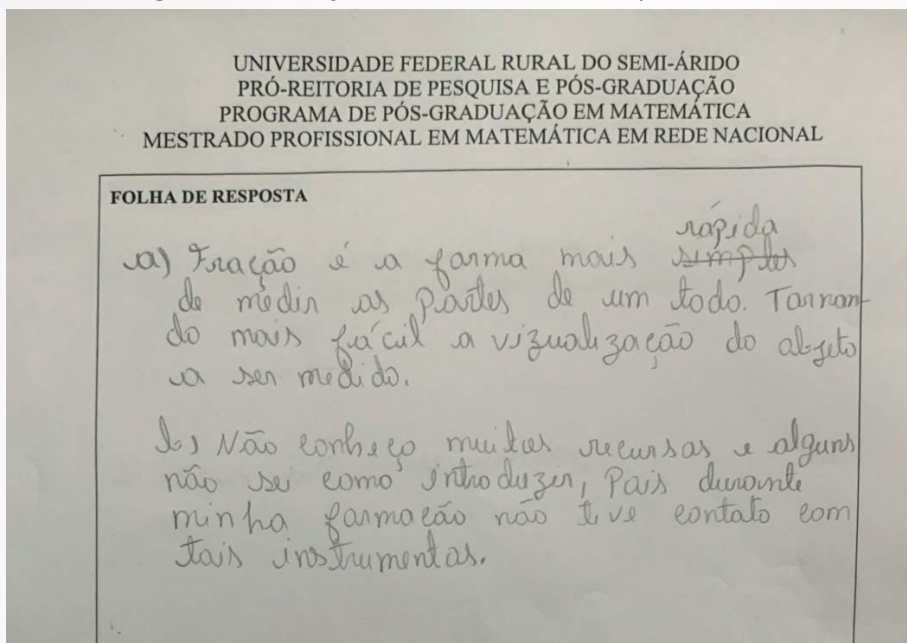 UNIVERSIDADE FEDERAL RURAL DO SEMI-ÁRIDO
PRÓ-REITORIA DE PESQUISA E PÓS-GRADUAÇÃO
PROGRAMA DE PÓS-GRADUAÇÃO EM MATEMÁTICA
MESTRADO PROFISSIONAL EM MATEMÁTICA EM REDE NACIONAL
FOLHA DE RESPOSTA
rápida
a) Fração é a forma mais simples
de medir as partes de um todo. Tornan-
do mais fácil a vizualização do objeto
a ser medido.
b) Não conheço muitos recursos e alguns
não sei como introduzir, Pois durante
minha formação não tive contato com
tais instrumentos.